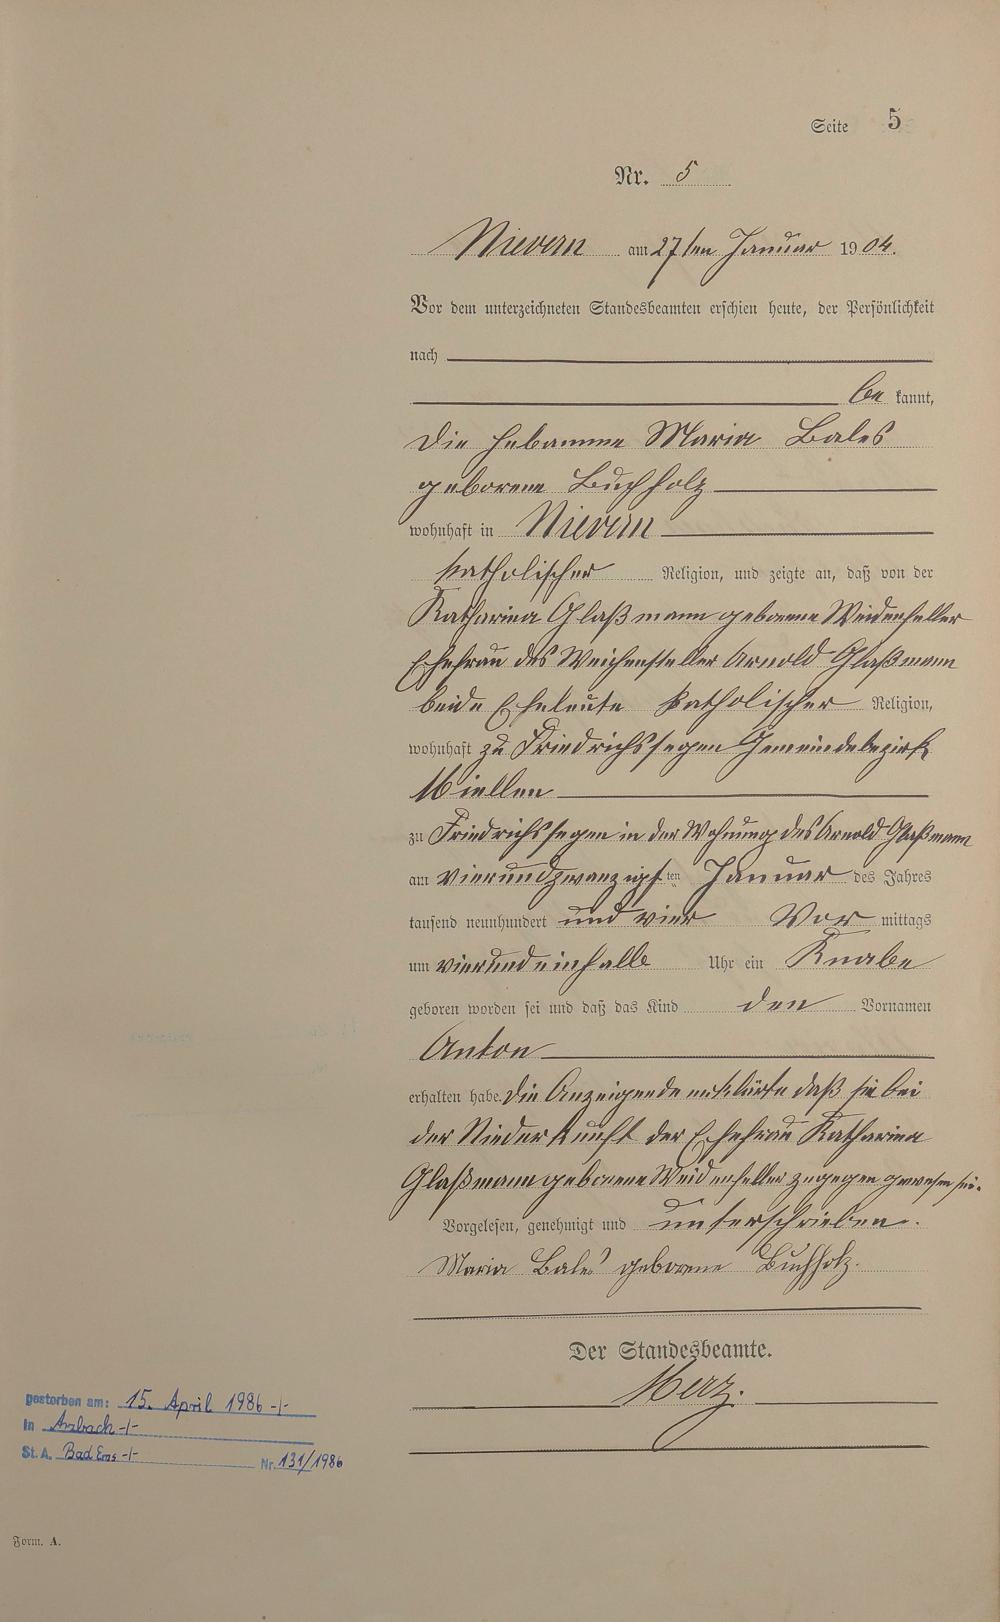 Seite 5
Nr. 5
Nievern am 27ten Januar 1904.
Vor dem unterzeichneten Standesbeamten erschien heute, der Persönlichkeit
nach
be kannt,
die Hebamme Maria Bales
geborene Buchholz
wohnhaft in Nievern
katholischer Religion, und zeigte an, daß von der
Katharina Glaßmann geborene Weidenfeller
Ehefrau des Weichensteller Arnold Glaßmann
beide Eheleute katholischer Religion,
wohnhaft zu Friedrichssegen Gemeindebezirk
Miellen
zu Friedrichssegen in der Wohnung des Arnold Glaßmann
am vierundzwanzigsten Januar des Jahres
tausend neunhundert und vier Vor mittags
um vierundeinhalb Uhr ein Knabe
geboren worden sei und daß das Kind den Vornamen
Anton
erhalten habe. Die Anzeigende erklärte daß sie bei
der Niederkunft der Ehefrau Katharina
Glaßmann geborene Weidenfeller zugegen gewesen sei.
Vorgelesen, genehmigt und unterschrieben.
Maria Bales geborene Buchholz.
Der Standesbeamte.
Merz.
gestorben am: 15. April 1986 -/-
in Arzbach -/-
St. A. Bad Ems -/- Nr. 131/1986
Form. A.